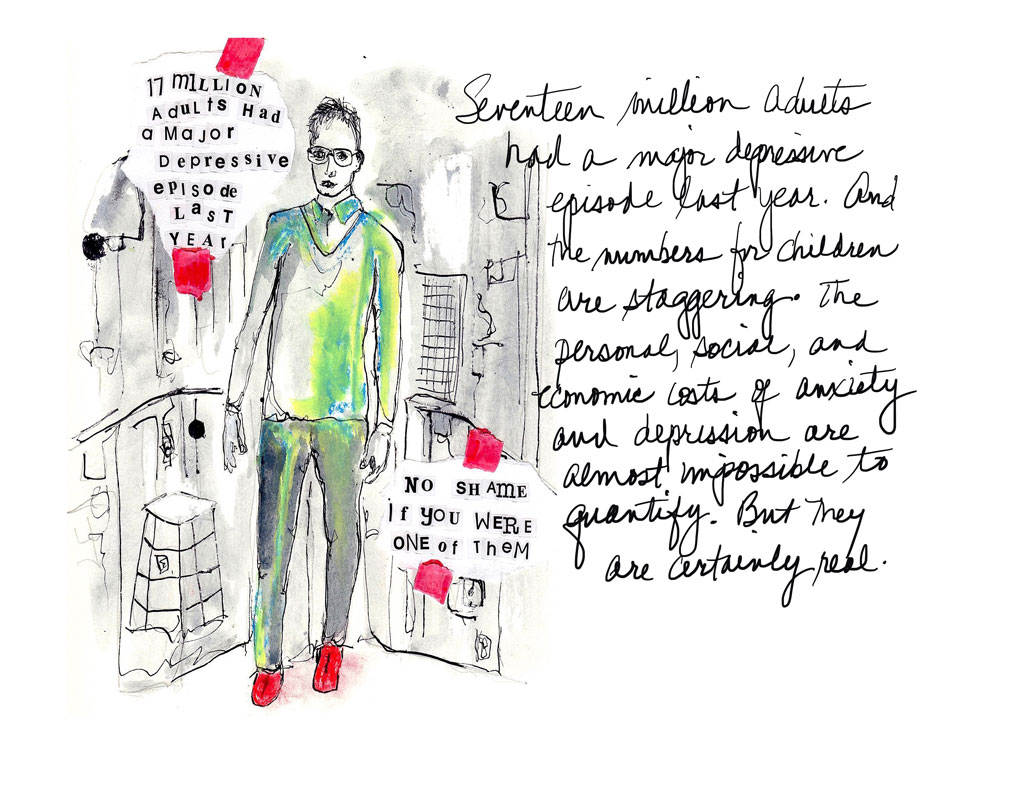 17 mILLION
AduLts Had
a Major
Depressive
episode
LasT
YEAr.
Seventeen million adults
had a major depressive
episode last year. And
the numbers for children
are staggering. The
personal, social, and
economic costs of anxiety
and depression are
almost impossible to
quantify. But they
are certainly real.
No SHAME
If YOU WERE
ONE of THeM